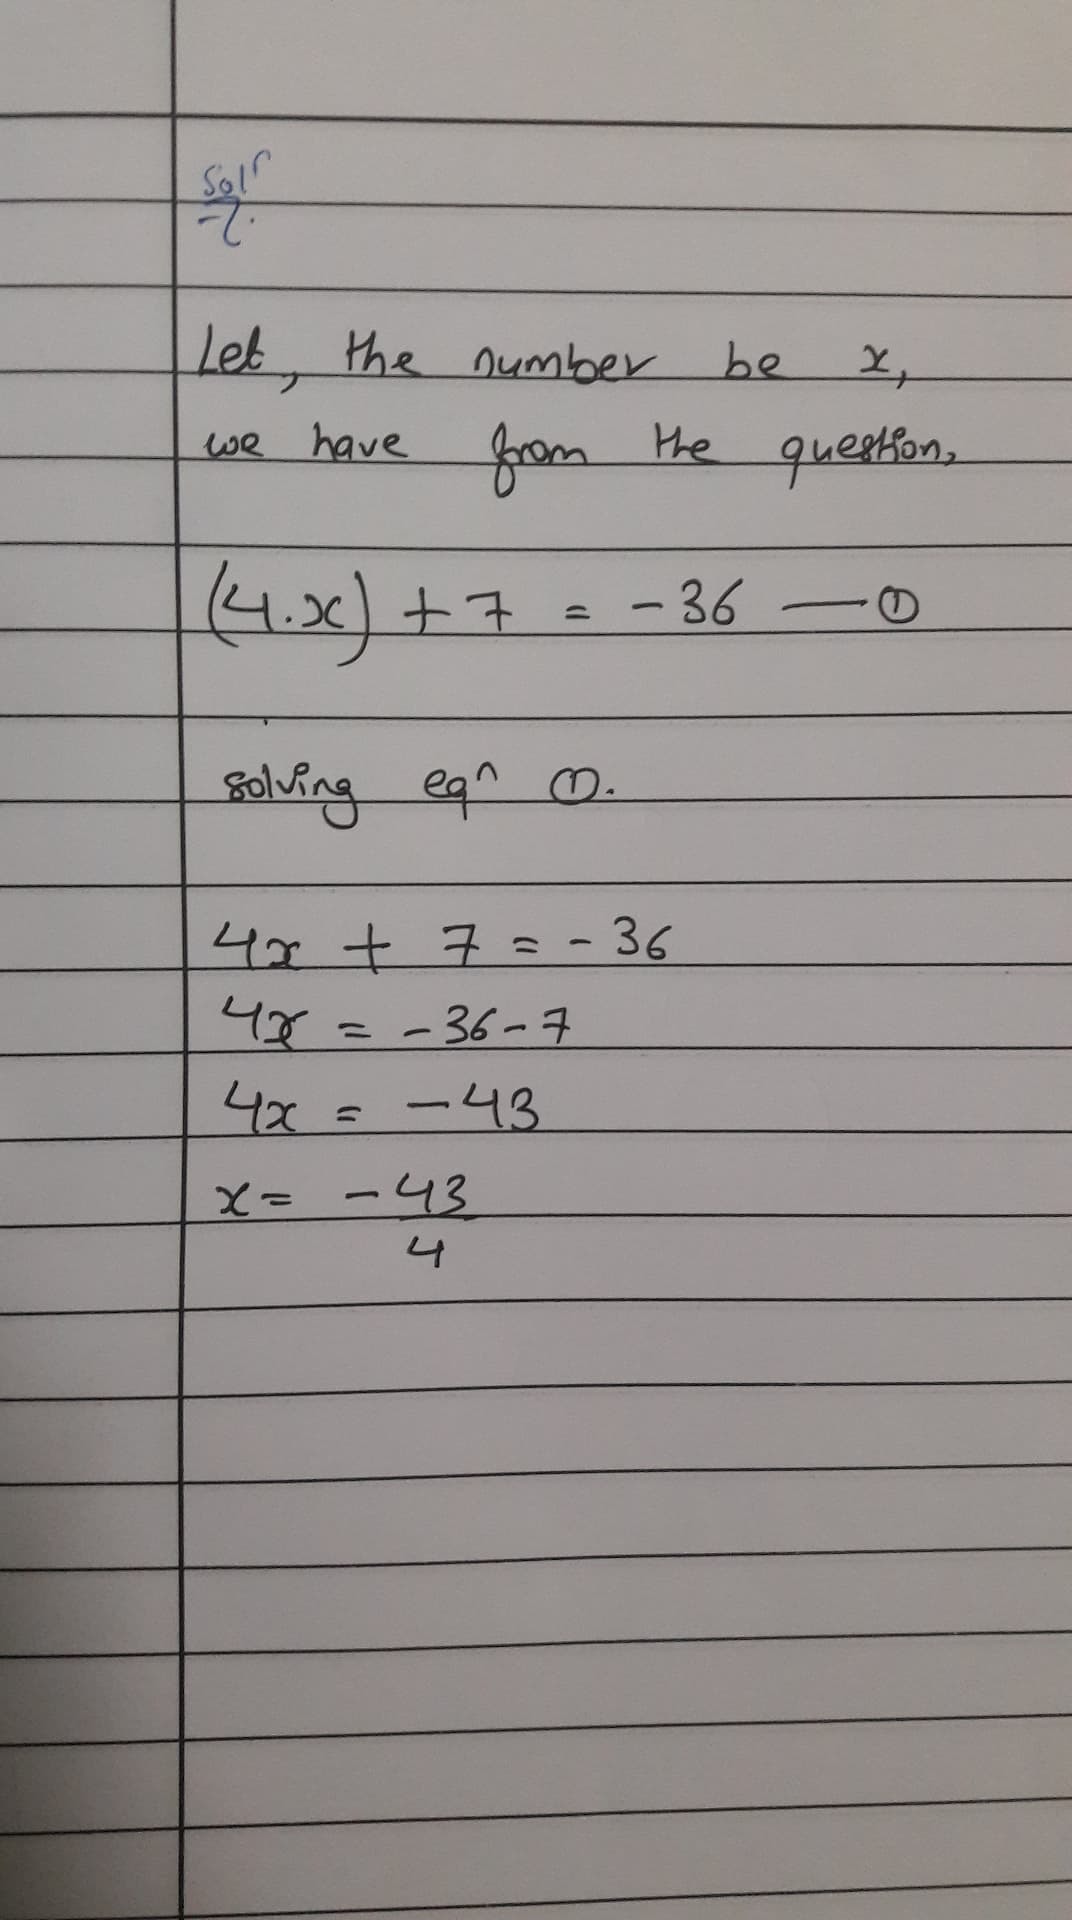 Solⁿ
Let, the number be x,
we have from the question,
(4.x) + 7 = -36 — ①
solving eqⁿ ①.
4x + 7 = - 36
4x = - 36 - 7
4x = - 43
x = - 43
4